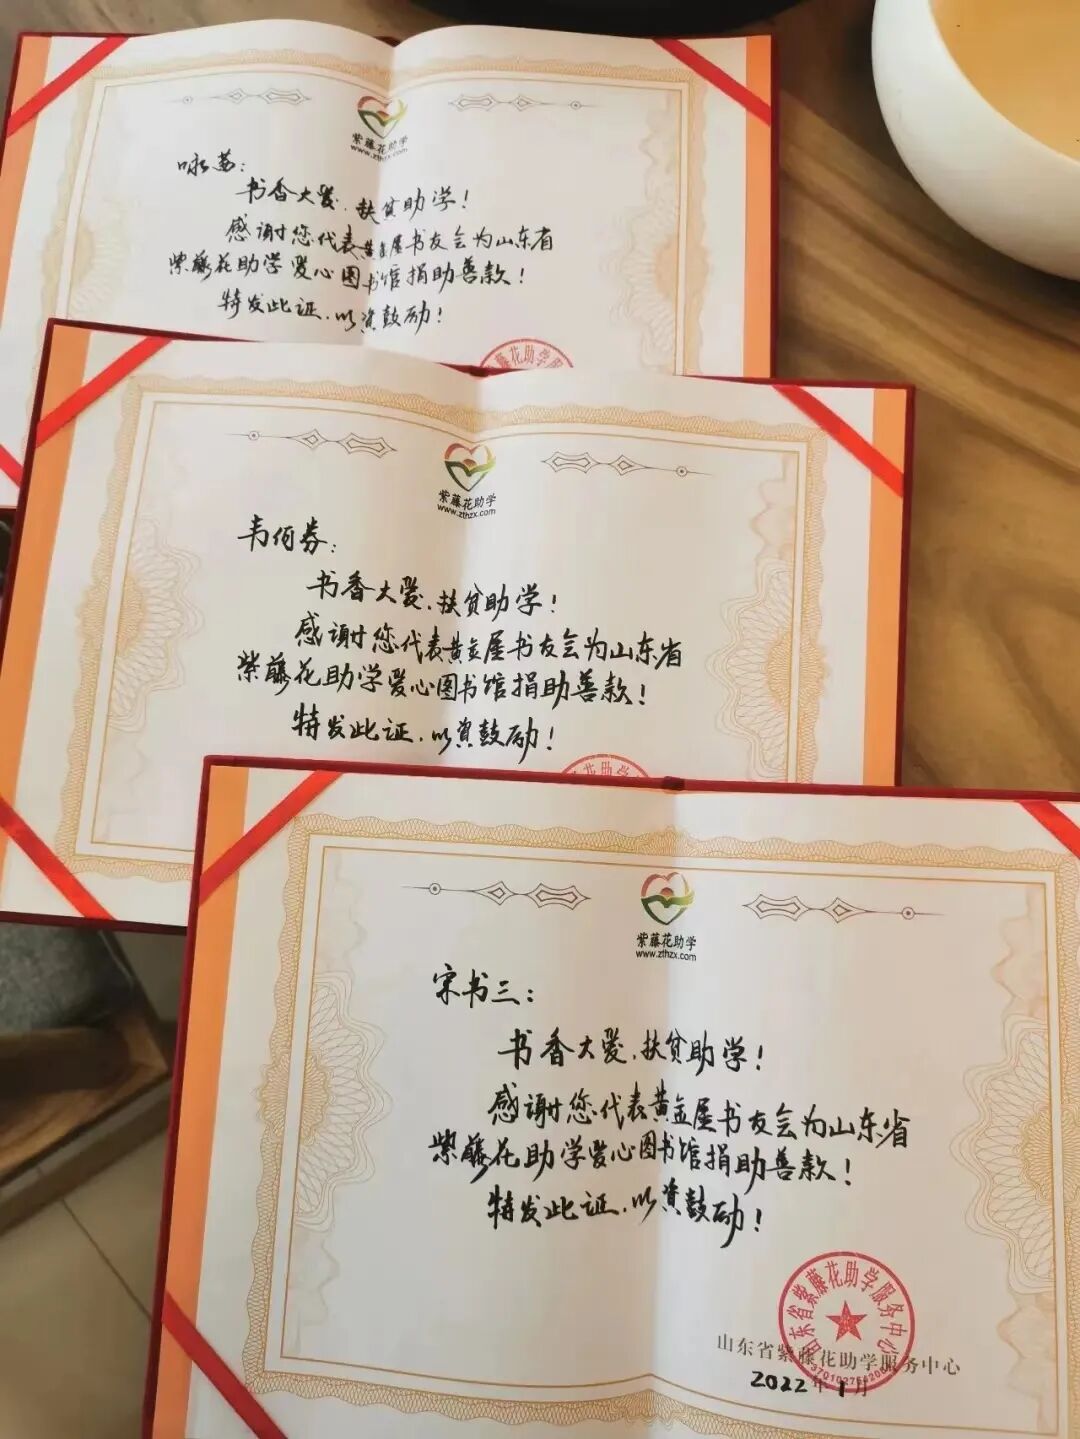 紫藤花助学
www.zthzx.com
咏荔:
书香大爱,扶贫助学!
感谢您代表黄金屋书友会为山东省
紫藤花助学爱心图书馆捐助善款!
特发此证,以资鼓励!
藤花助学服
紫藤花助学
www.zthzx.com
韦伯券:
书香大爱,扶贫助学!
感谢您代表黄金屋书友会为山东省
紫藤花助学爱心图书馆捐助善款!
特发此证,以资鼓励!
花助学
紫藤花助学
www.zthzx.com
宋书三:
书香大爱,扶贫助学!
感谢您代表黄金屋书友会为山东省
紫藤花助学爱心图书馆捐助善款!
特发此证,以资鼓励!
山东省紫藤花助学服务中心
山东省紫藤花助学服务中心
2022年1月